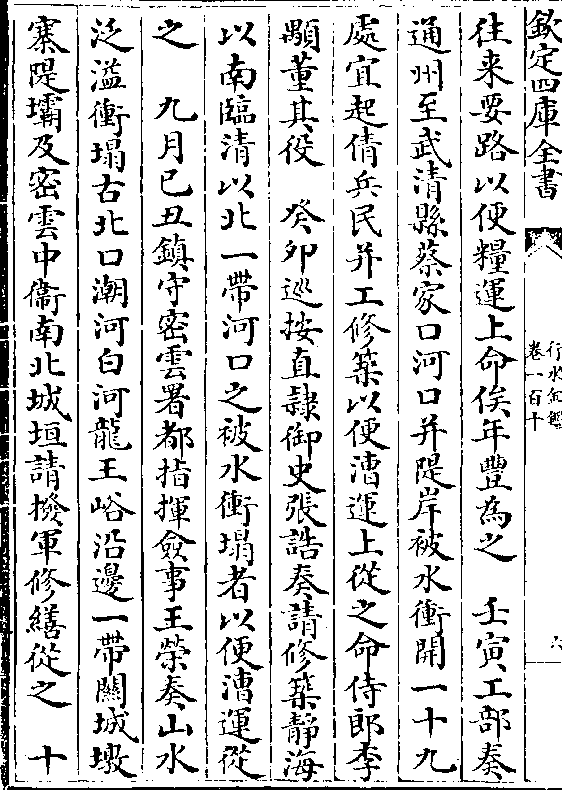 欽定四庫全書
行水金鑑
卷一百十
六
往来要路以便糧運上命俟年豐為之　壬寅工部奏
通州至武清縣蔡家口河口并隄岸被水衝開一十九
處宜起倩兵民并工修築以便漕運上從之命侍郎李
顒董其役　癸卯巡按直隸御史張誥奏請修築靜海
以南臨清以北一帶河口之被水衝塌者以便漕運從
之　九月己丑鎮守密雲署都指揮僉事王榮奏山水
泛溢衝塌古北口潮河白河龍王峪沿邊一帶關城墩
寨隄壩及密雲中衛南北城垣請撥軍修繕從之　十